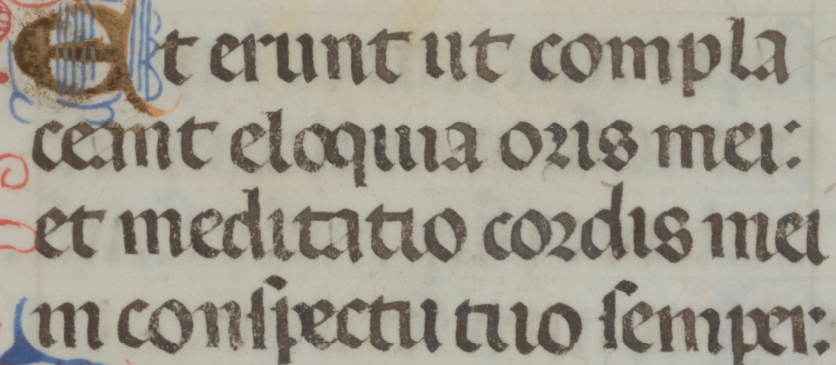 Et erunt ut compla
ceant eloquia oris mei:
et meditatio cordis mei
in conspectu tuo semper: